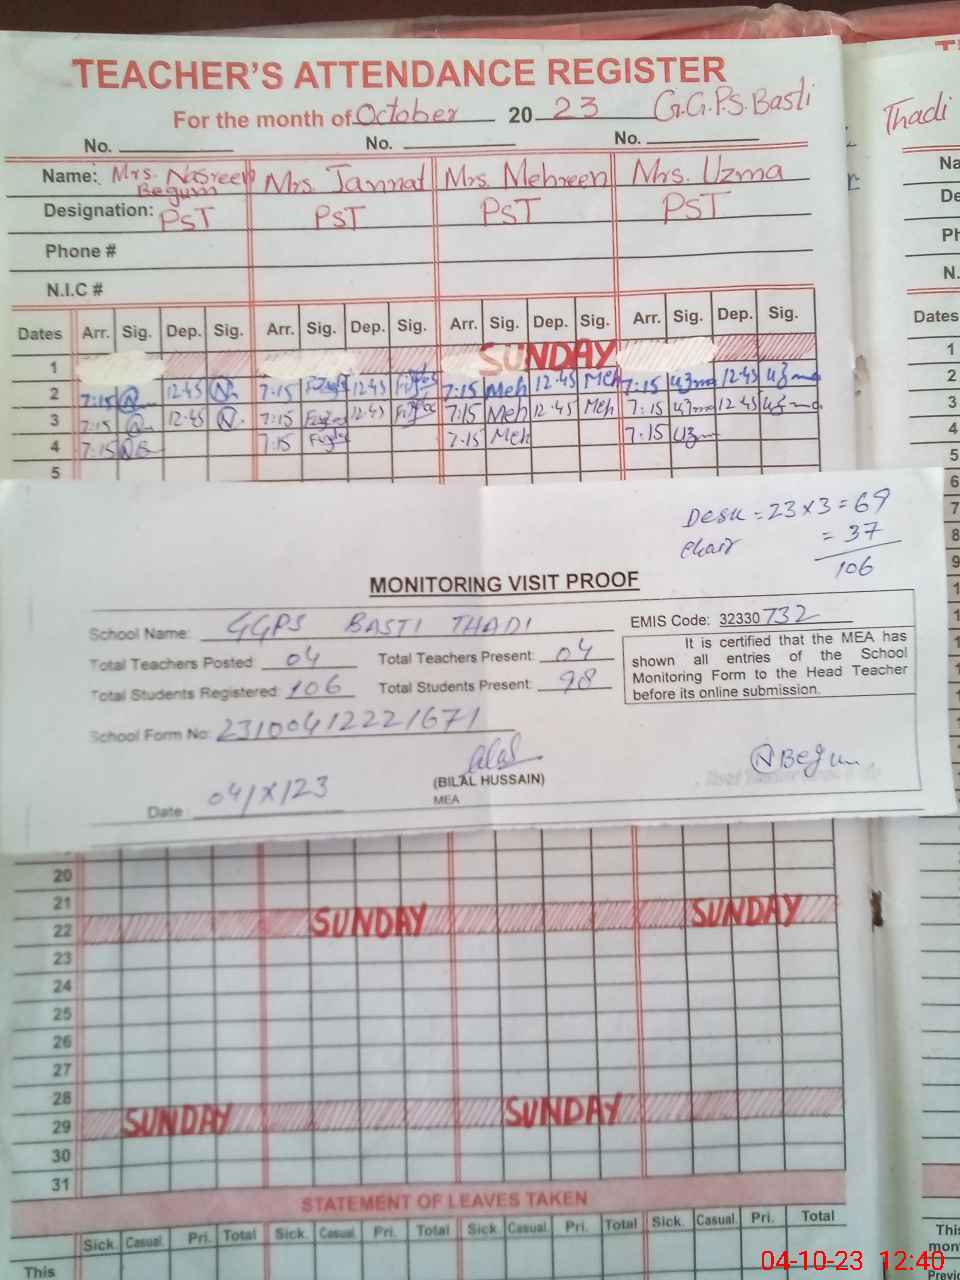 TEACHER'S ATTENDANCE REGISTER
For the month of October 20 23 G.G.P.S. Basti Thadi
No. No. No.
Name: Mrs. Nasreen Begum Mrs. Jannat Mrs. Mehreen Mrs. Uzma
Designation: PST PST PST PST
Phone #
N.I.C #
Dates Arr. Sig. Dep. Sig. Arr. Sig. Dep. Sig. Arr. Sig. Dep. Sig. Arr. Sig. Dep. Sig.
1 SUNDAY
2 7:15 12:45 7:15 12:45 7:15 Meh 12:45 Meh 7:15 uzma 12:45 uzma
3 7:15 12:45 7:15 12:45 7:15 Meh 12:45 Meh 7:15 uzma 12:45 uzma
4 7:15 7:15 7:15 Meh 7:15 uzm
5
Desk = 23 x 3 = 69
Chair = 37
106
MONITORING VISIT PROOF
School Name: GGPS BASTI THADI
EMIS Code: 32330732
Total Teachers Posted: 04 Total Teachers Present: 04
Total Students Registered: 106 Total Students Present: 98
School Form No: 23100412221671
It is certified that the MEA has
shown all entries of the School
Monitoring Form to the Head Teacher
before its online submission.
Bilal
(BILAL HUSSAIN)
MEA
N Begum
Date: 04/X/23
20
21
22 SUNDAY SUNDAY
23
24
25
26
27
28
29 SUNDAY SUNDAY
30
31
STATEMENT OF LEAVES TAKEN
Sick. Casual. Pri. Total Sick. Casual. Pri. Total Sick. Casual. Pri. Total Sick. Casual. Pri. Total
This
Na
De
Ph
N.
Dates
1
2
3
4
5
6
7
8
9
This
mon
Previ
04-10-23 12:40